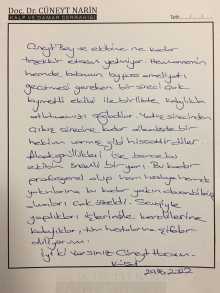 Doç. Dr. CÜNEYT NARİN
KALP VE DAMAR CERRAHİSİ
Tarih ..../..../....
Cüneyt Bey ve ekibine ne kadar
teşekkür etsem yetmiyor. Hemanemin
hemde babamın bypass ameliyatı
geçirmesi gereken bir süreci çok
kıymetli ekibi ile birlikte, kolaylıkla
atlatmamızı sağladılar. Yatış sürecinden
çıkış sürecine kadar ailemizde bir
hekim varmış gibi hissettirdiler.
Alçak gönüllülükleri ile beraber
ekibin önemli bir yanı. Bu kadar
profesyonel olup hem hastaya hemde
yakınlarına bu kadar yakın
olmaları çok özeldi. Sevgiyle
yaptıkları işlerinde kendilerine
kolaylıklar, tüm hastalarına şifalar
diliyorum.
İyi ki varsınız Cüneyt Hocam